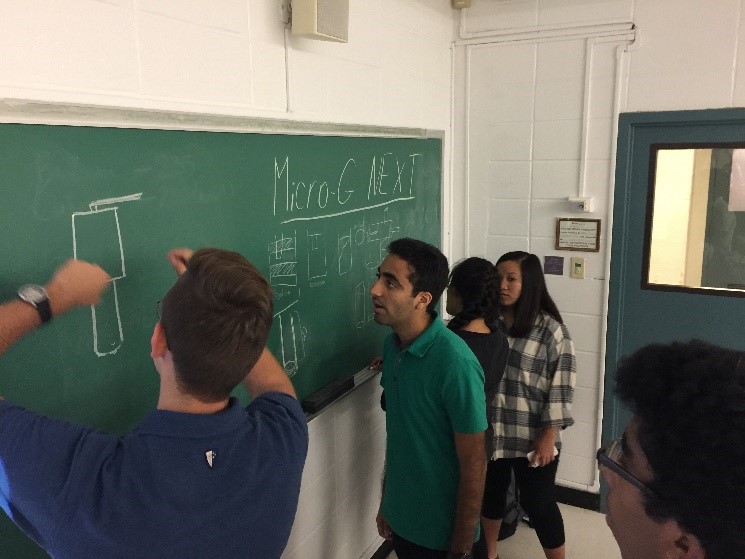 Micro-G NEXT